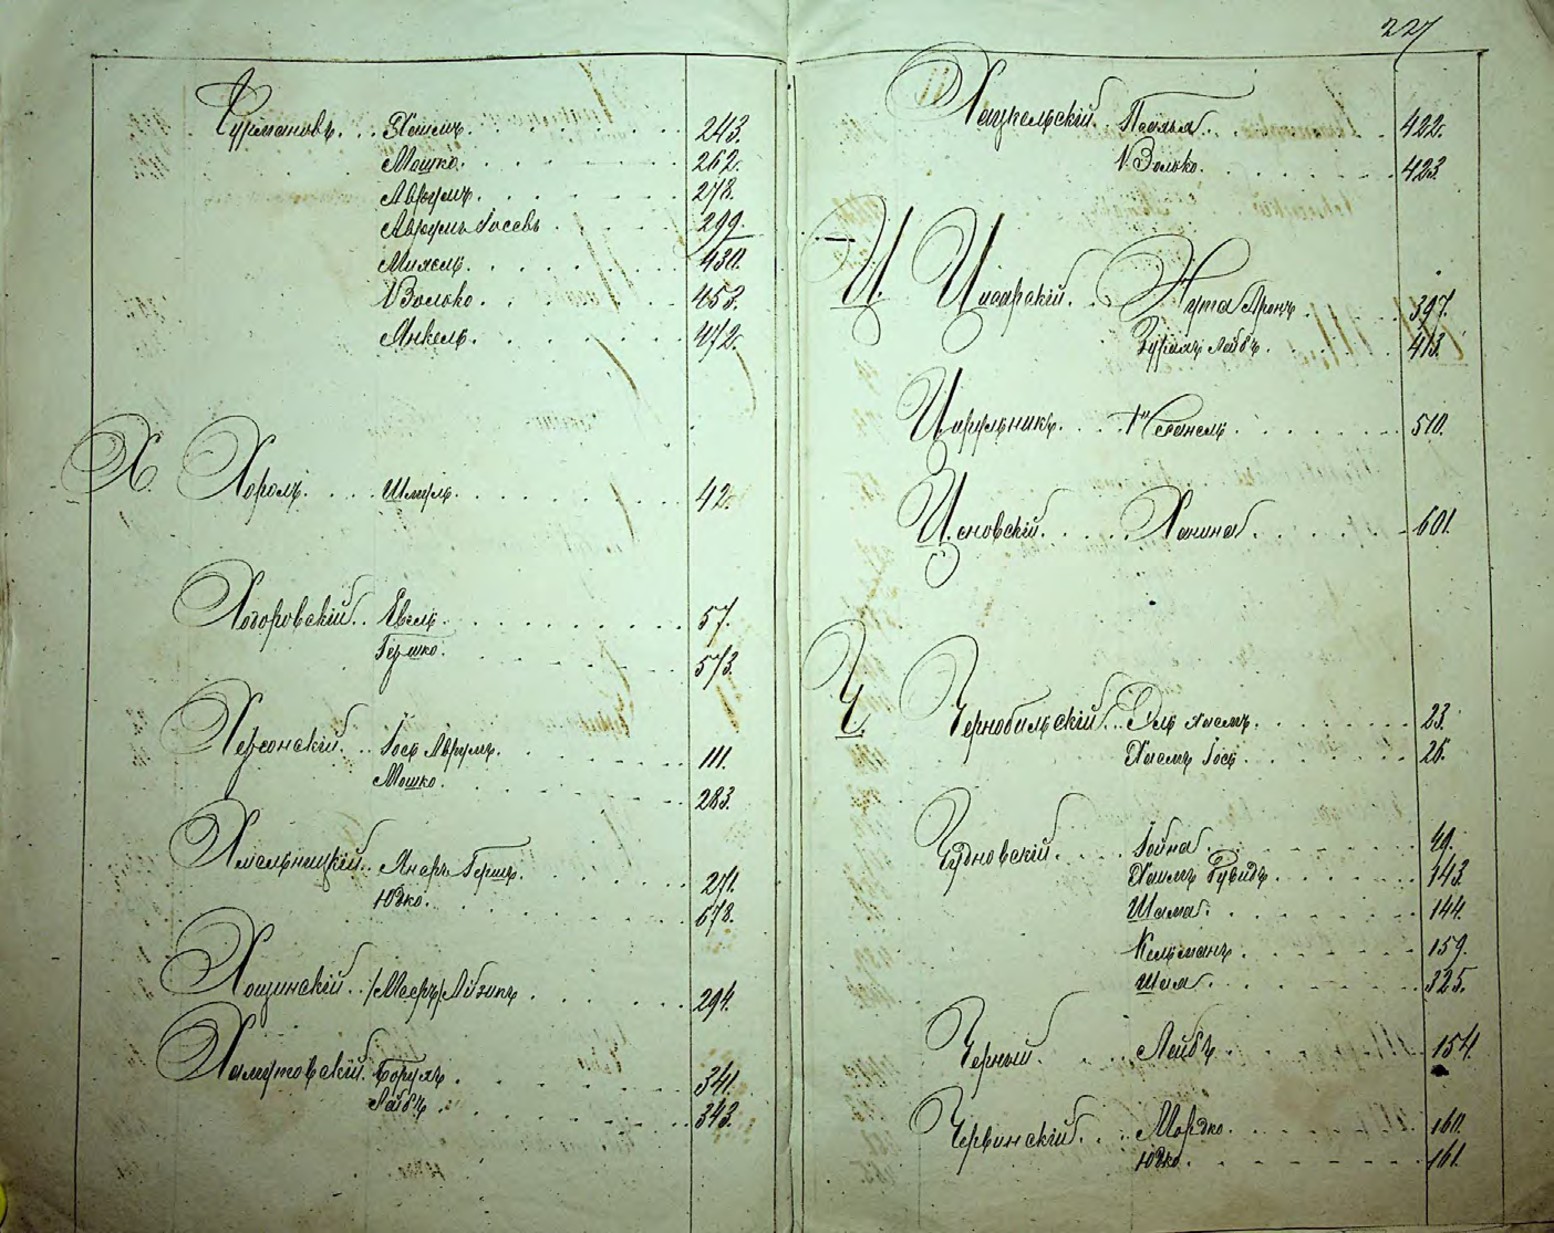 227
Фурмановъ. Хаимъ. 243.
Мошко. 262.
Аврумъ. 278.
Аврумъ Іосевъ 299.
Михель. 430.
Волько. 453.
Янкель. 472.
Х. Хороль. Шмуль. 42.
Ходоровскій. Евель. 57.
Гершко. 573.
Херсонскій. Іось Аврумъ. 111.
Мошко. 283.
Хмельницкій. Янеръ Гершъ. 271.
Юдко. 678.
Хощинскій. /Мееръ/ Айзикъ 294.
Хамутовскій. Борухъ. 341.
Лейбъ 343.
Хацкельскій. 422.
Волько. 423.
Ц. Цисарскій. Нута Аронъ. 397.
Лейбъ. 413.
Цирульникъ. 510.
Цсновскій. Ханина. 601.
Ч. Чернобильскій. Эль Хаемъ. 23.
Хаемъ Іось. 26.
Чудновскій. Іойна. 49.
Хаимъ Рувидъ. 143.
Шама. 144.
Кельманъ. 159.
Шая. 325.
Черный. Лейбъ. 154.
Червинскій. Мордко. 160.
Юдко. 161.